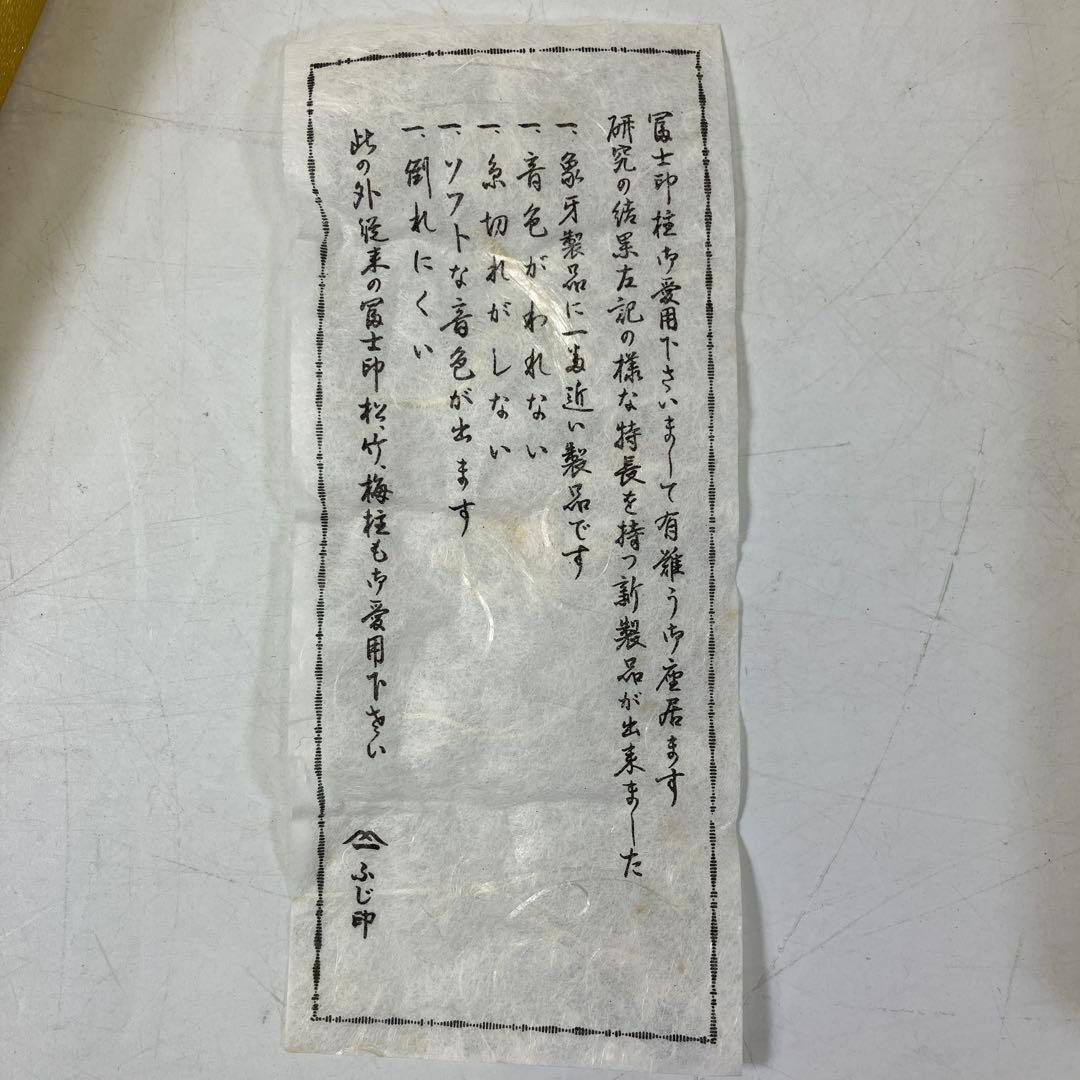 冨士印柱御愛用下さいまして有難う御座居ます
研究の結果左記の様な特長を持つ新製品が出来ました
一、象牙製品に一番近い製品です
一、音色がわれない
一、糸切れがしない
一、ソフトな音色が出ます
一、倒れにくい
此の外従来の冨士印松、竹、梅柱も御愛用下さい
ふじ印